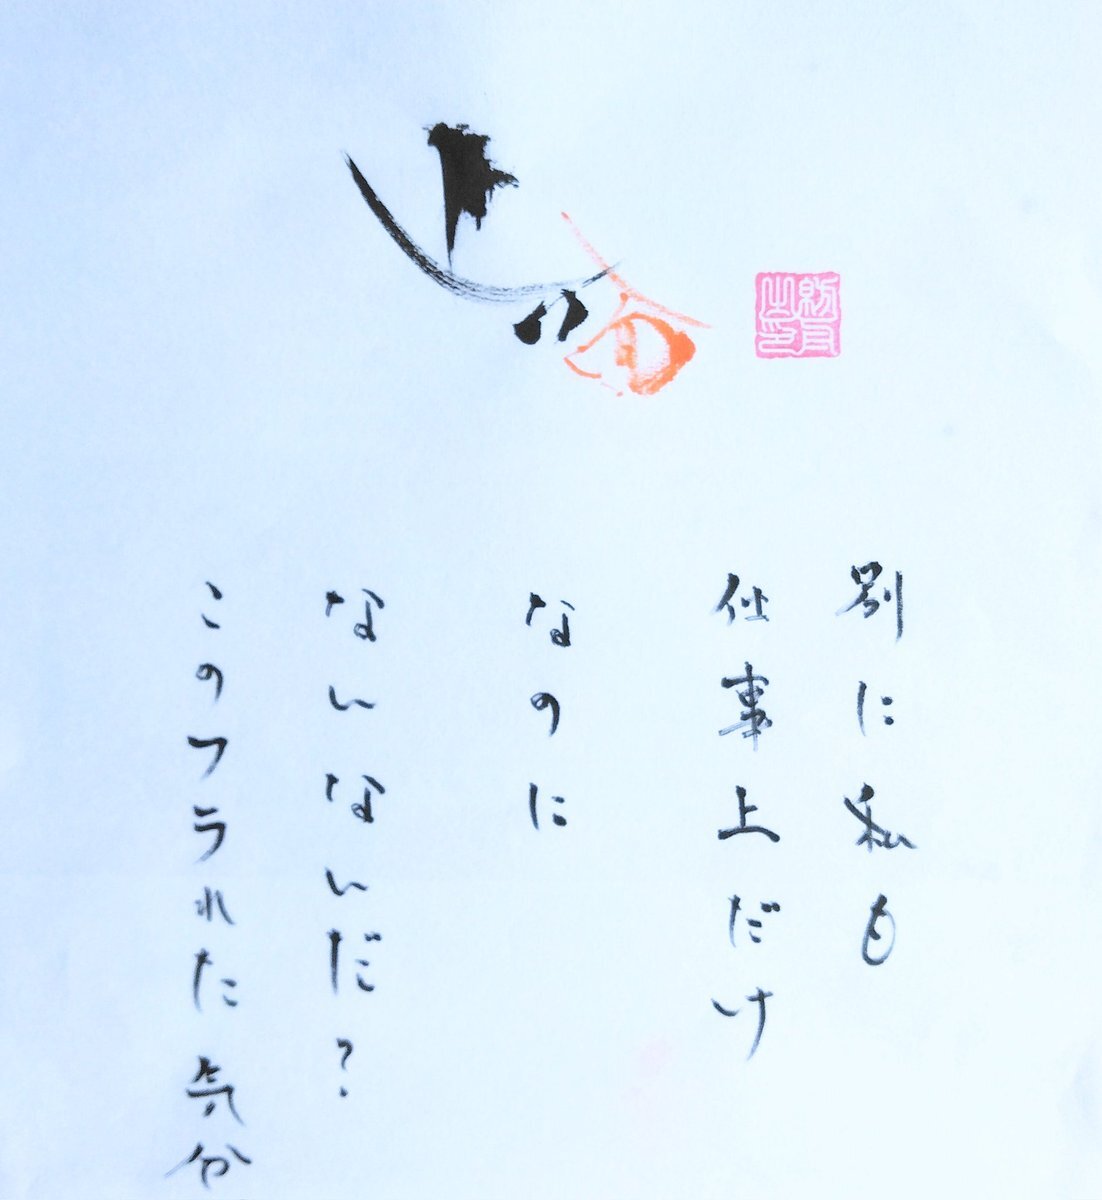 別に私も
仕事上だけ
なのに
ないないだ?
このフラれた気分